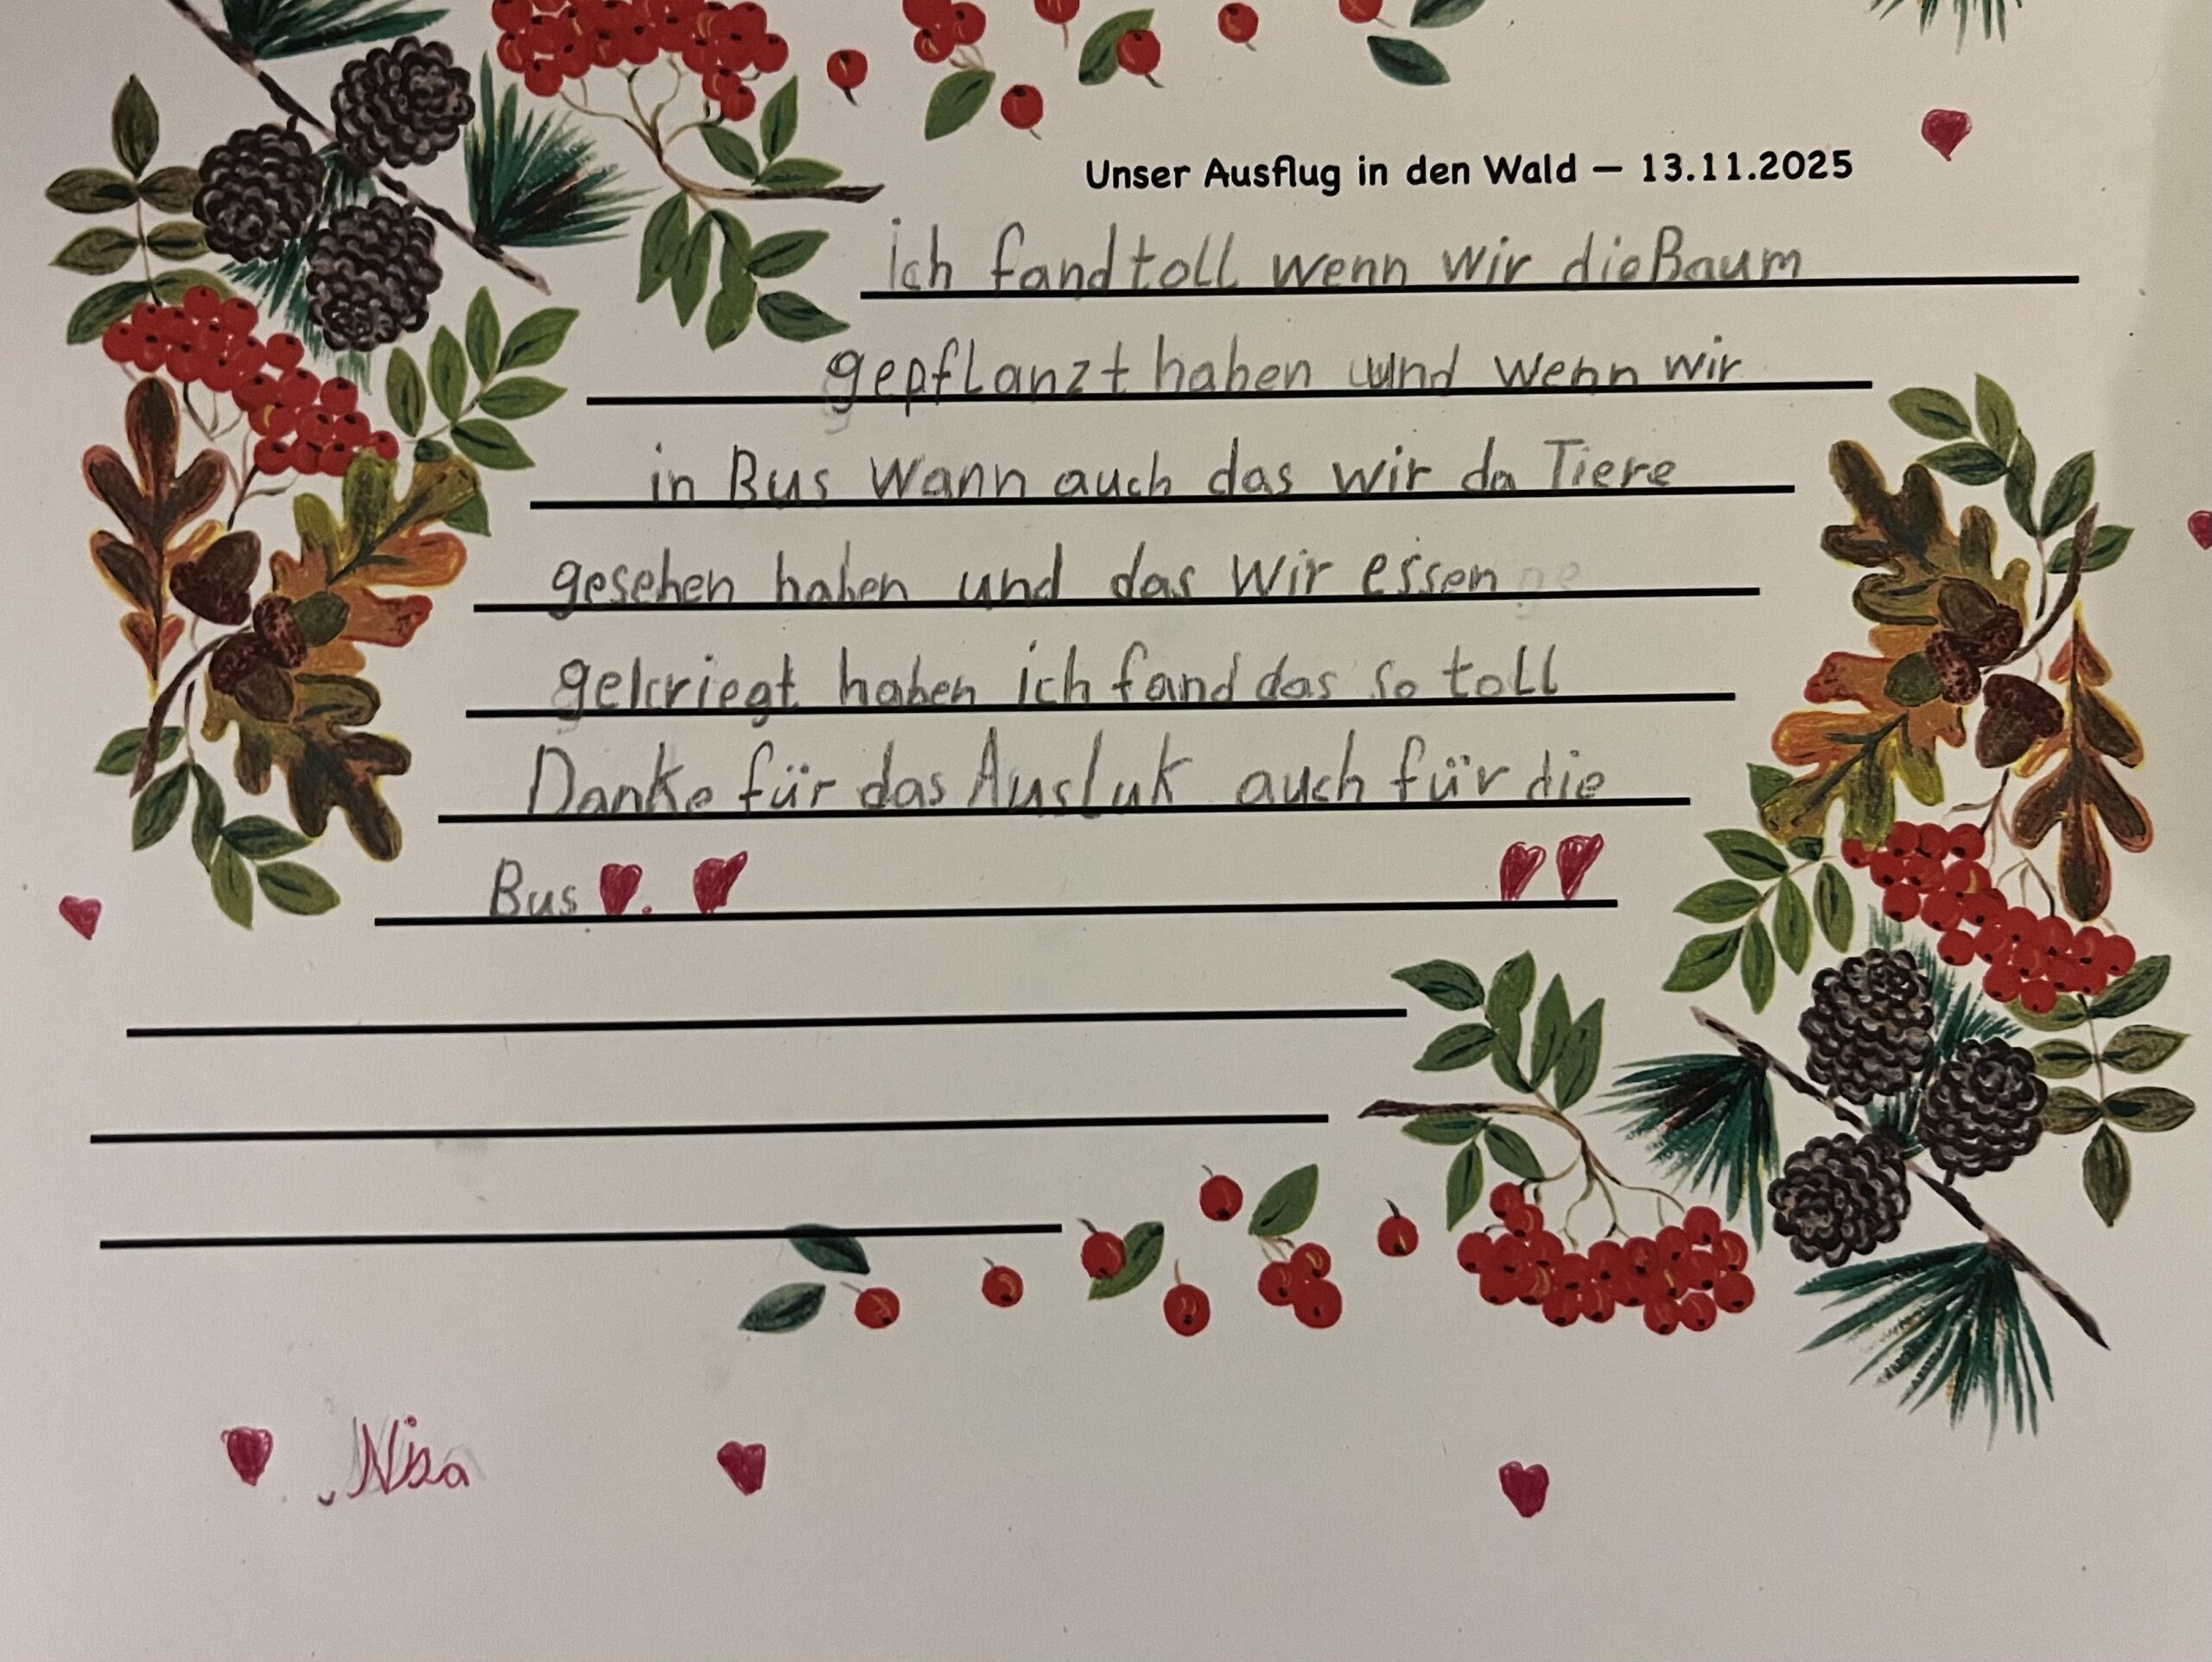 Unser Ausflug in den Wald – 13.11.2025
ich fand toll wenn wir die Baum
gepflanzt haben und wenn wir
in Bus wann auch das wir da Tiere
gesehen haben und das wir essen
gekriegt haben ich fand das so toll
Danke für das Ausluk auch für die
Bus.